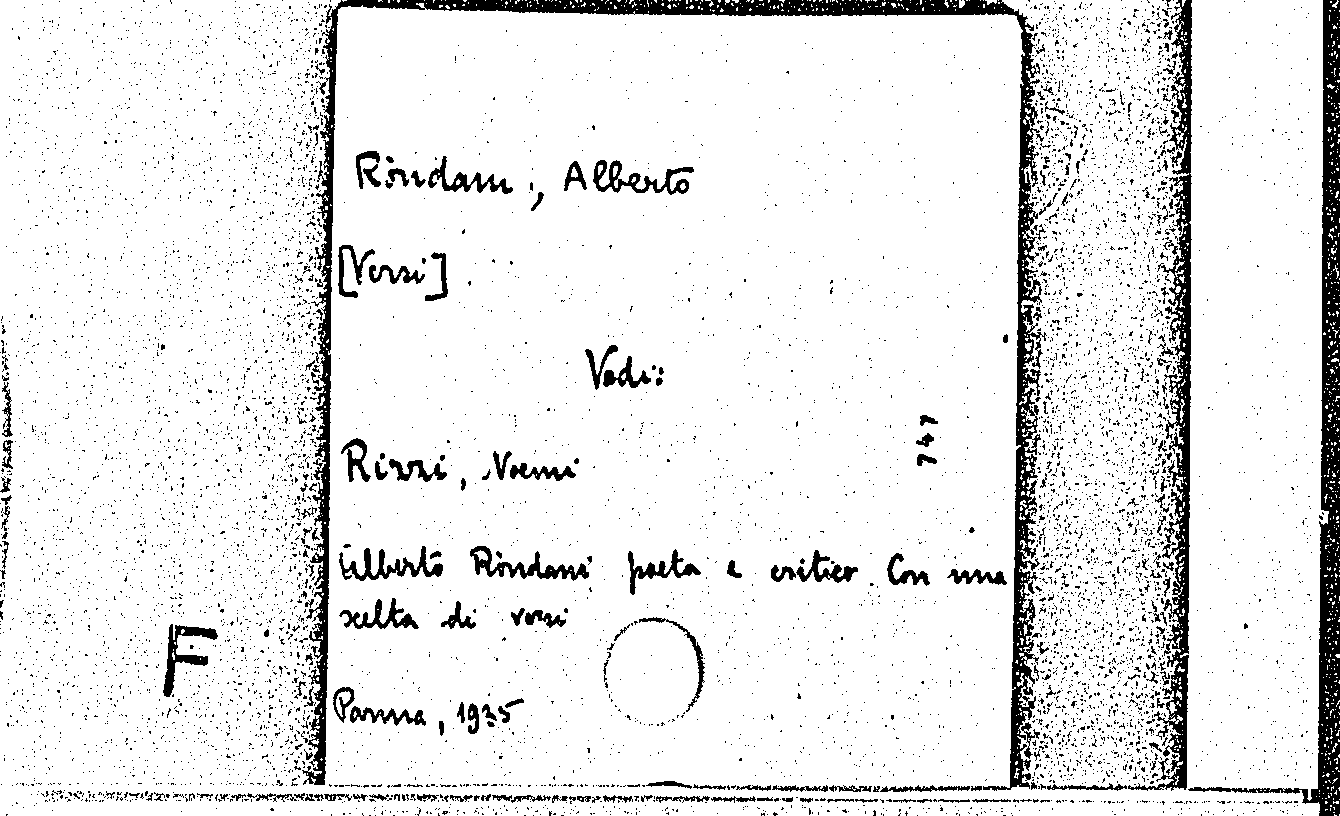 Rondani, Alberto
[Versi]
Vedi:
Rizzi, Noemi
747
Alberto Rondani poeta e critico. Con una
scelta di versi
F
Parma, 1935